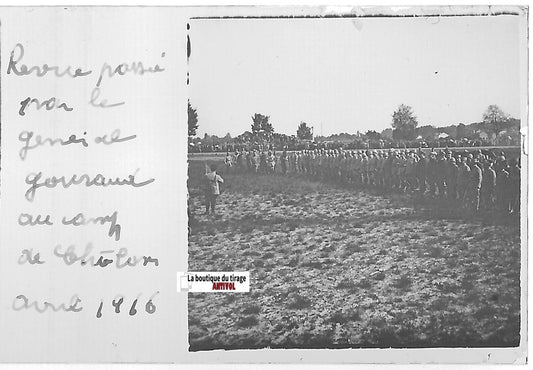 Revue passée
par le
général
gouraud
au camp
de Châlons
avril 1916
La boutique du tirage
ANTIVOL